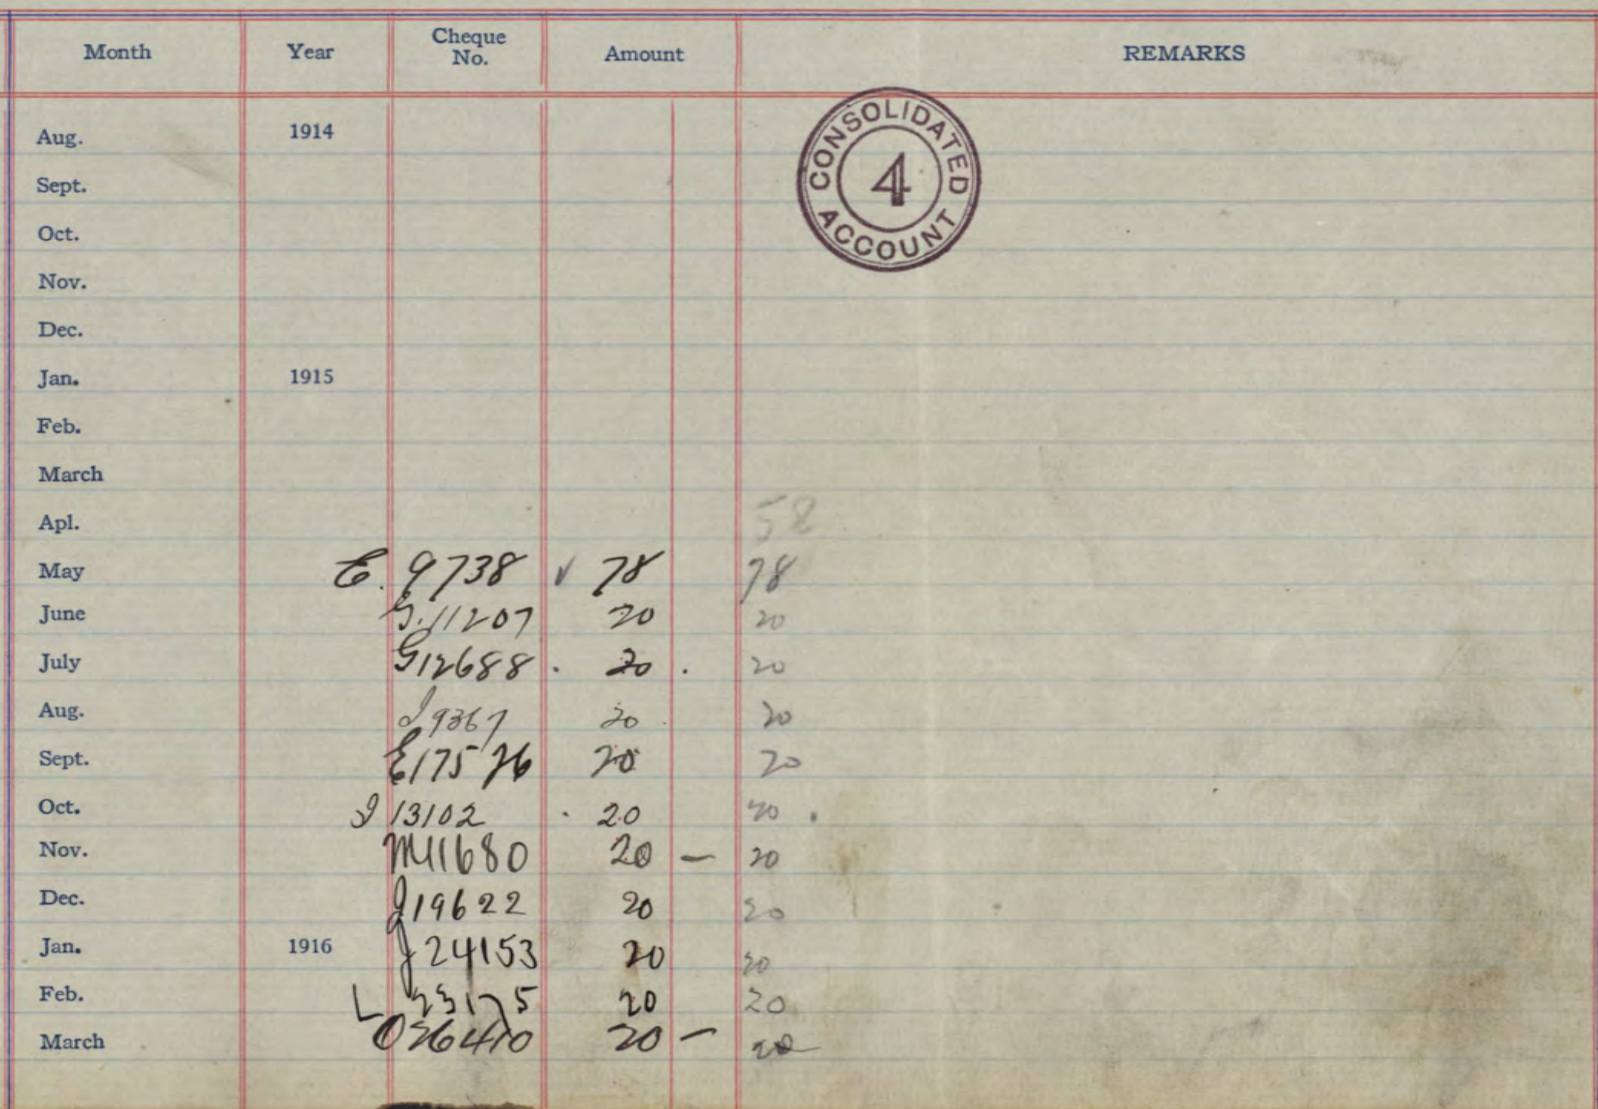 Month Year Cheque No. Amount REMARKS
CONSOLIDATED ACCOUNT 4
Aug. 1914
Sept.
Oct.
Nov.
Dec.
Jan. 1915
Feb.
March
Apl. 58
May E. 9738 78 78
June G.11207 20 20
July G12688 . 20 . 20
Aug. I 9367 20 20
Sept. E17526 20 20
Oct. I 13102 . 20 20 .
Nov. M11680 20 — 20
Dec. J19622 20 20
Jan. 1916 J24153 20 20
Feb. L 23175 20 20
March O26410 20 — 20